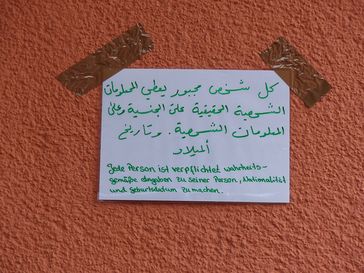 كل شخص مجبور يعطي المعلومات
الشخصية الحقيقية على الجنسية وعلى
المعلومات الشخصية. وتاريخ
الميلاد
Jede Person ist verpflichtet wahrheits-
gemäße Angaben zu seiner Person, Nationalität
und Geburtsdatum zu machen.